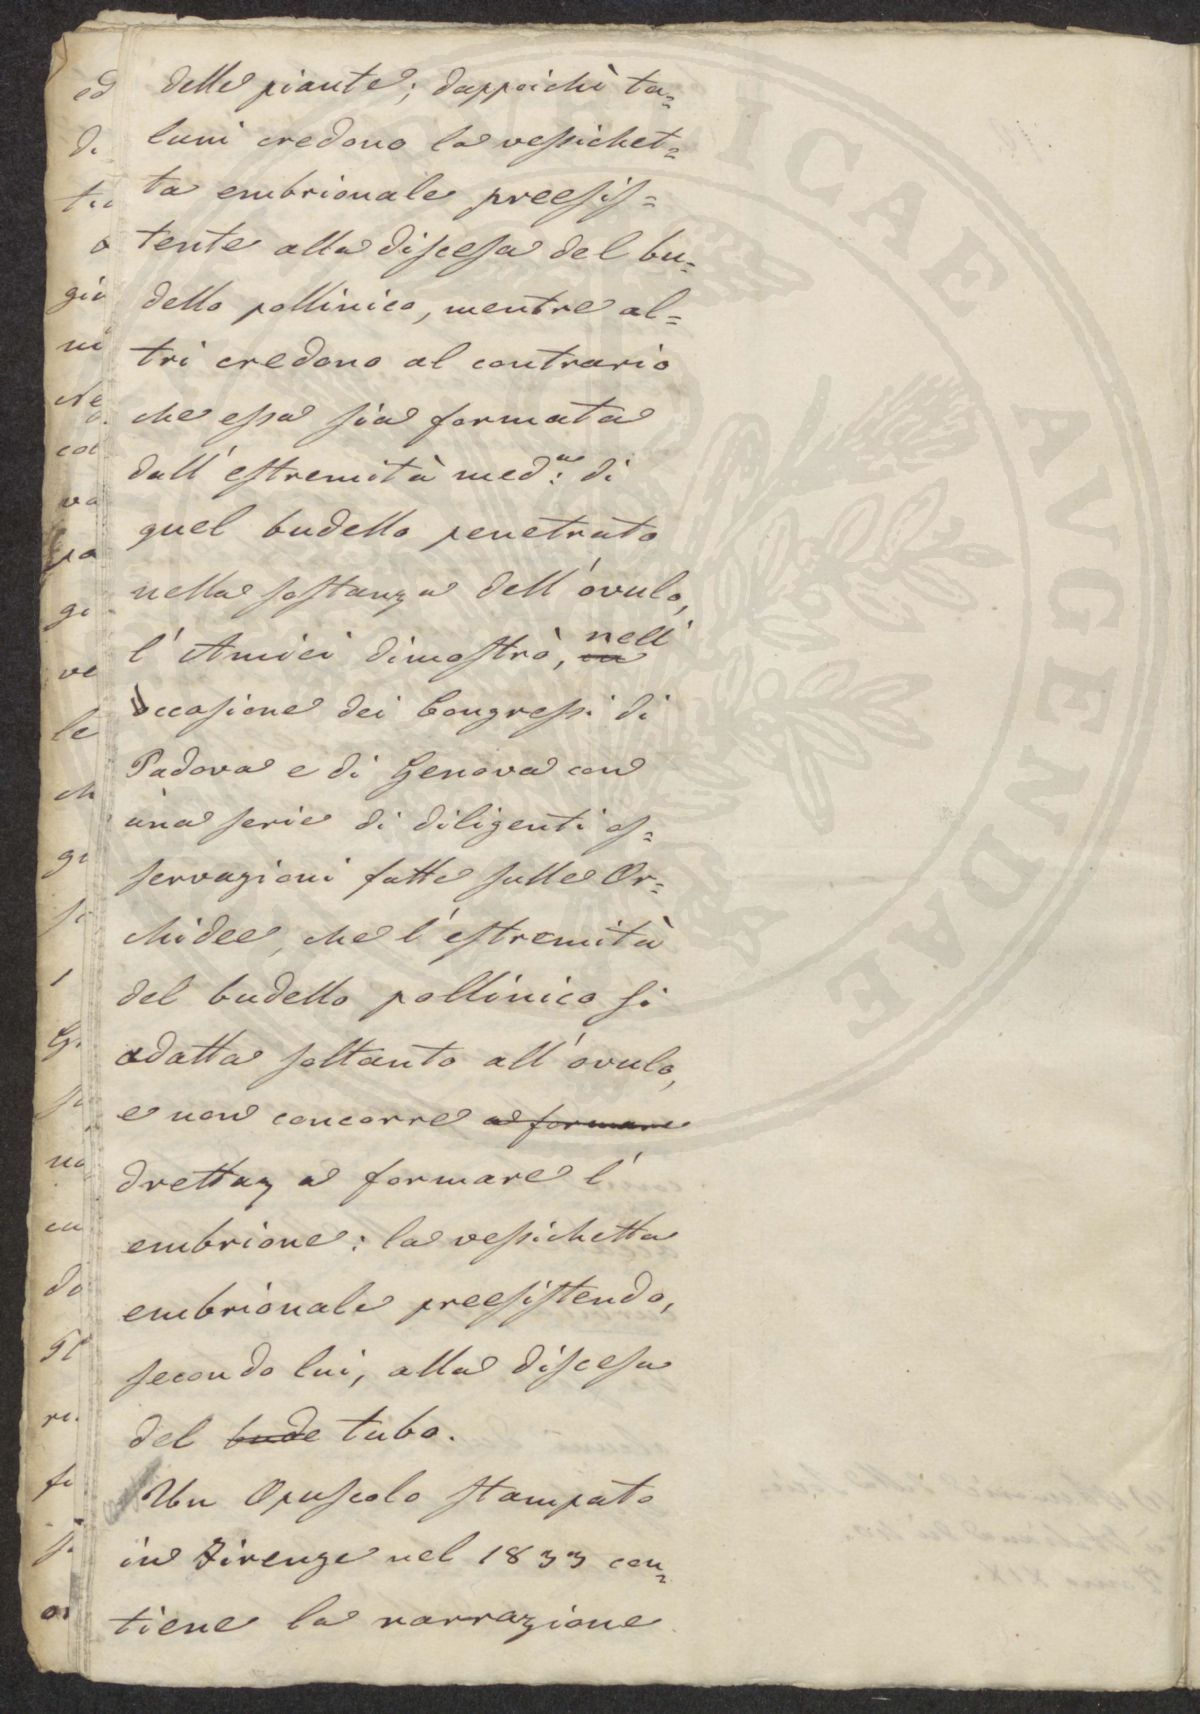 delle piante; dappoichè ta=
luni credono la vessichet=
ta embrionale preesis=
tente alla discesa del bu=
dello pollinico, mentre al=
tri credono al contrario
che essa sia formata
dall'estremità med.ª di
quel budello penetrato
nella sostanza dell'ovulo,
l'Amici dimostrò, in nell'
occasione dei Congressi di
Padova e di Genova con
una serie di diligenti os=
servazioni fatte sulle Or=
chidee, che l'estremità
del budello pollinico si
adatta soltanto all'ovulo,
e non concorre a formare
drettaz a formare l'
embrione: la vessichetta
embrionale preesistendo,
secondo lui, alla discesa
del bude tubo.
Un Opuscolo stampato
in Firenze nel 1833 con=
tiene la narrazione